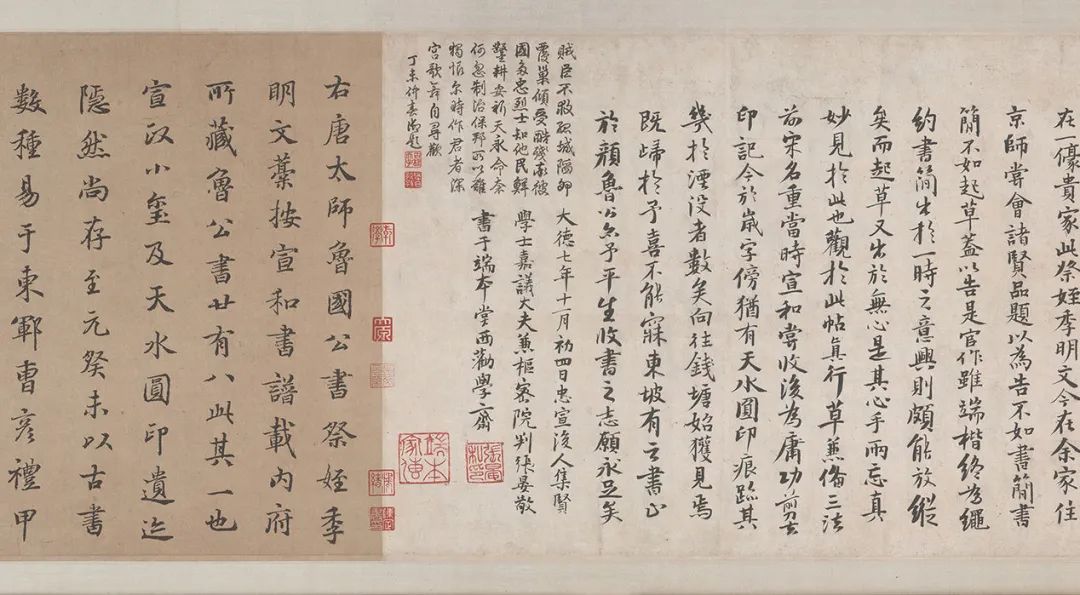 在一儫貴家此祭姪季明文今在余家住
京師嘗會諸賢品題以為告不如書簡書
簡不如起草蓋以告是官作雖端楷終為繩
約書簡出於一時之意興則頗能放縱
矣而起草又出於無心是其心手兩忘真
妙見於此也觀於此帖真行草兼備三法
前宋名重當時宣和嘗收後為庸功剪去
印記今於歲字傍猶有天水圓印痕跡其
幾於湮没者數矣向往錢塘始獲見焉
既歸於予喜不能寐東坡有云書止
於顏魯公亦予平生收書之志願永足矣
大德七年十月初四日忠宣後人集賢
學士嘉議大夫兼樞密院判張晏敬
書于端本堂西勸學齋
張晏私印
端本家傳
賊臣不救孤城陷卵
覆巢傾受酷殘家彼
國多忠烈士知他民鮮
鑿耕安祈天永命奈
何忽制治保邦所以難
獨恨尔時作君者深
宮歌舞自尋歡
丁未仲春御題
右唐太師魯國公書祭姪季
明文藁按宣和書譜載内府
所藏魯公書廿有八此其一也
宣政小璽及天水圓印遺迹
隱然尚存至元癸未以古書
數種易于東鄆曹彦禮甲